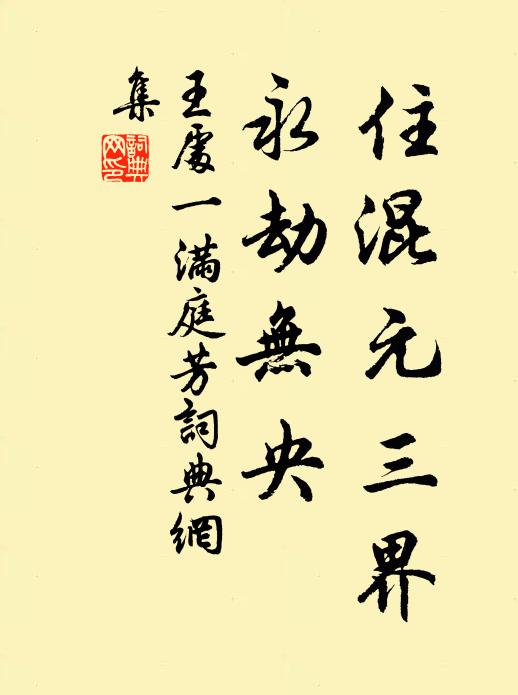 住混元三界
永劫無央
王處一滿庭芳詞典網
集
詞典
网印